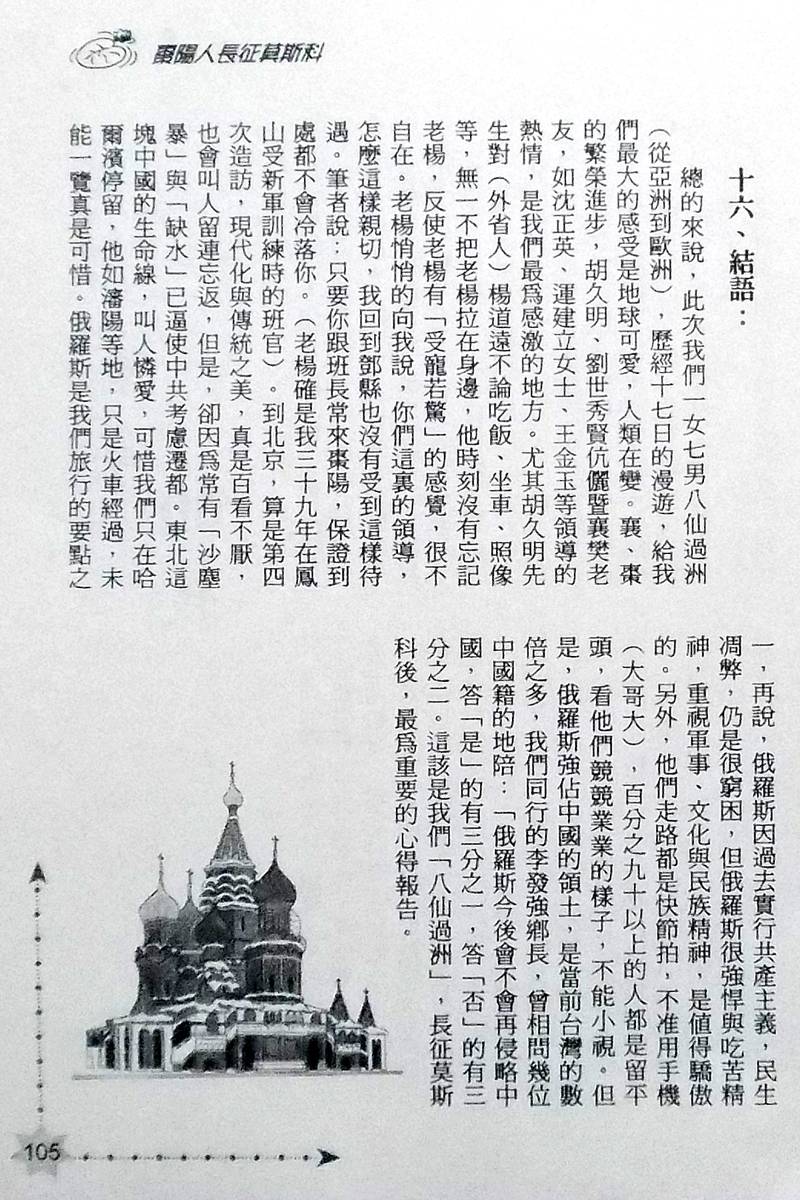 棗陽人長征莫斯科
十六、結語：
總的來說，此次我們一女七男八仙過洲
（從亞洲到歐洲），歷經十七日的漫遊，給我
們最大的感受是地球可愛，人類在變。襄、棗
的繁榮進步，胡久明、劉世秀賢伉儷暨襄樊老
友，如沈正英、運建立女士、王金玉等領導的
熱情，是我們最爲感激的地方。尤其胡久明先
生對（外省人）楊道遠不論吃飯、坐車、照像
等，無一不把老楊拉在身邊，他時刻沒有忘記
老楊，反使老楊有「受寵若驚」的感覺，很不
自在。老楊悄悄的向我說，你們這裏的領導，
怎麼這樣親切，我回到鄧縣也沒有受到這樣待
遇。筆者說：只要你跟班長常來棗陽，保證到
處都不會冷落你。（老楊確是我三十九年在鳳
山受新軍訓練時的班官）。到北京，算是第四
次造訪，現代化與傳統之美，真是百看不厭，
也會叫人留連忘返，但是，卻因爲常有「沙塵
暴」與「缺水」已逼使中共考慮遷都。東北這
塊中國的生命線，叫人憐愛，可惜我們只在哈
爾濱停留，他如瀋陽等地，只是火車經過，未
能一覽真是可惜。俄羅斯是我們旅行的要點之
一，再說，俄羅斯因過去實行共產主義，民生
凋弊，仍是很窮困，但俄羅斯很強悍與吃苦精
神，重視軍事、文化與民族精神，是值得驕傲
的。另外，他們走路都是快節拍，不准用手機
（大哥大），百分之九十以上的人都是留平
頭，看他們競競業業的樣子，不能小視。但
是，俄羅斯強佔中國的領土，是當前台灣的數
倍之多，我們同行的李發強鄉長，曾相問幾位
中國籍的地陪：「俄羅斯今後會不會再侵略中
國，答「是」的有三分之一，答「否」的有三
分之二。這該是我們「八仙過洲」，長征莫斯
科後，最爲重要的心得報告。
105